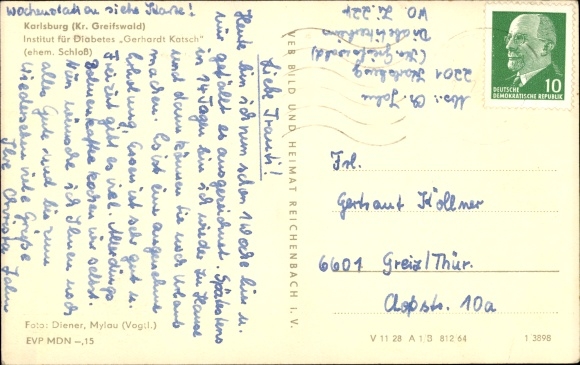 Wochenstation siehe Karte!
Karlsburg (Kr. Greifswald)
Institut für Diabetes „Gerhardt Katsch"
(ehem. Schloß)
Liebe Trauti!
Heute bin ich nun schon 1 Woche hier u.
mir gefällt es ausgezeichnet. Spätestens
in 14 Tagen bin ich wieder zu Hause
und dann können Sie noch Urlaub
machen. Es ist eine angenehme
Erholung. Essen ist sehr gut u.
Freizeit gibt es viel. Allerdings
Bohnenkaffee kochen wir selbst.
Nun wünsche ich Ihnen noch
alles Gute und bis zum
Wiedersehen viele Grüße
Ihre Christa Jahn
Foto: Diener, Mylau (Vogtl.)
EVP MDN –,15
VEB BILD UND HEIMAT REICHENBACH I. V.
Abs.: Ch. Jahn
2201 Karlsburg
(Kr. Greifswald)
Diabetikerheim
WO. Z. 224
10
DEUTSCHE
DEMOKRATISCHE REPUBLIK
Frl.
Gertraut Köllner
6601 Greiz/Thür.
Clopstr. 10a
V 11 28 A 1/B 812 64 1 3898